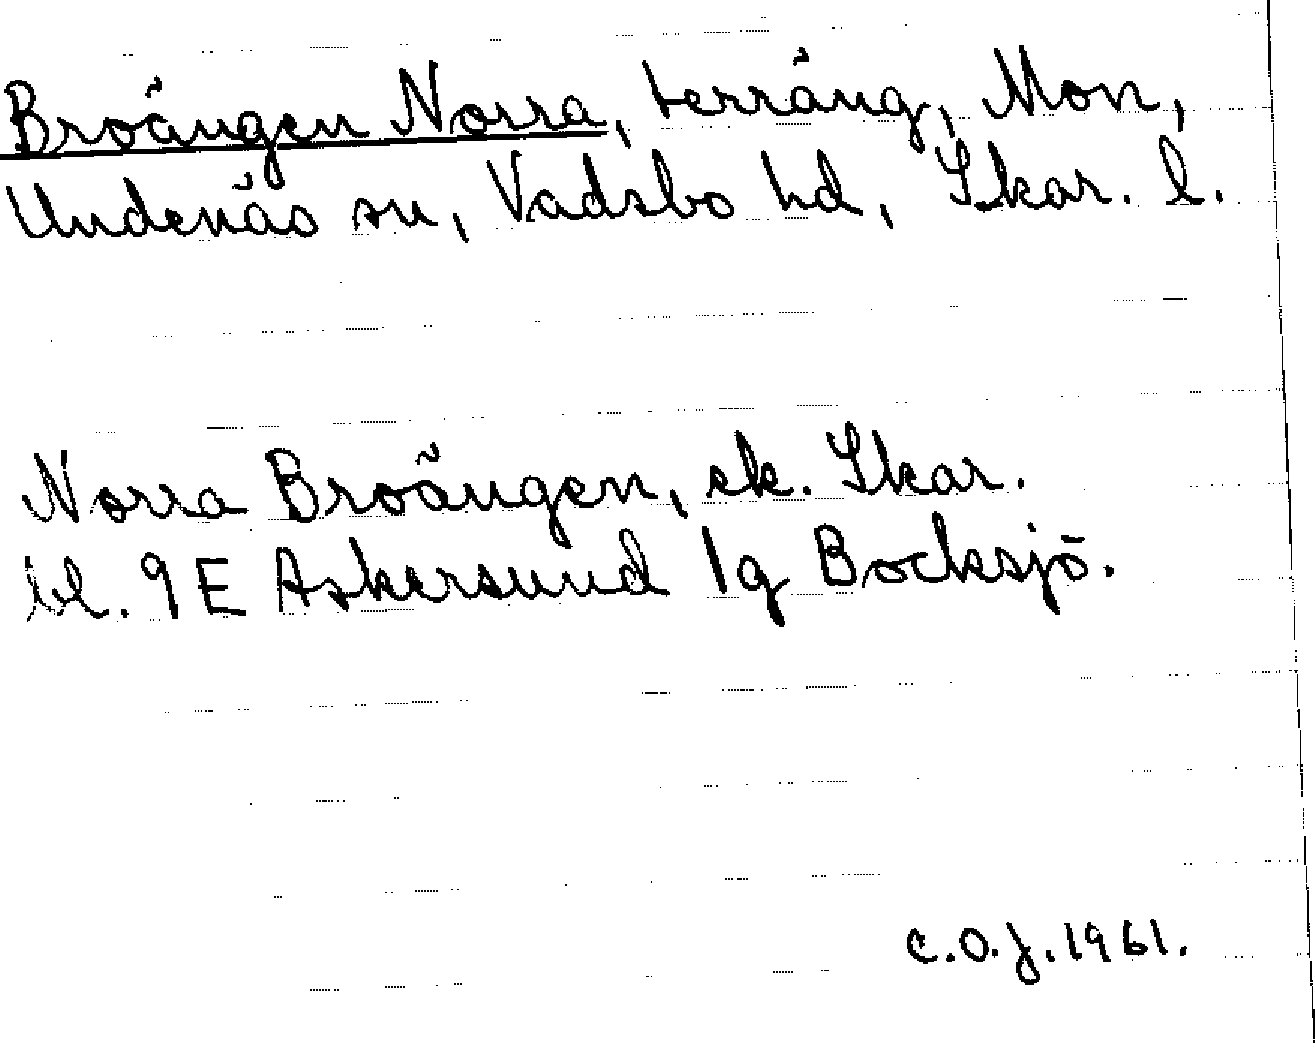 Broängen Norra, terräng, Mon,
Undenäs sn, Vadsbo hd, Skar. l.
Norra Broängen, ek. Skar.
bl. 9E Askersund 1g Bocksjö.
C.O.J. 1961.